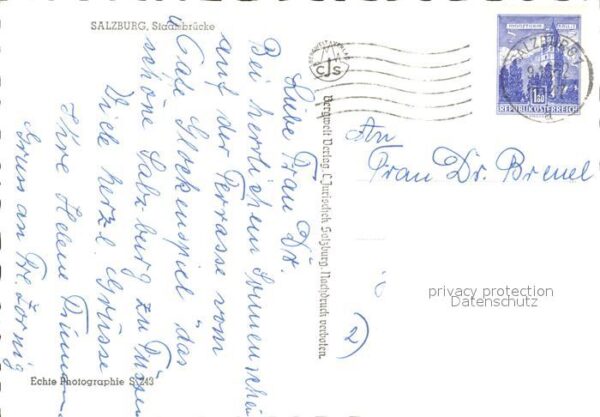 SALZBURG, Staatsbrücke
Liebe Frau Dr.
Bei herrlichem Sonnenschein
auf der Terrasse vom
Cafe Glockenspiel das
schöne Salzburg zu Füssen
Viele herzl. Grüsse
Ihre Helene
Gruss an Frl. Zornig
Echte Photographie S 243
Bergwelt Verlag, C. Jurischek Salzburg. Nachdruck verboten.
CJS
SALZBURG
1.60
REPUBLIK ÖSTERREICH
An
Frau Dr. Brenel
privacy protection
Datenschutz
2